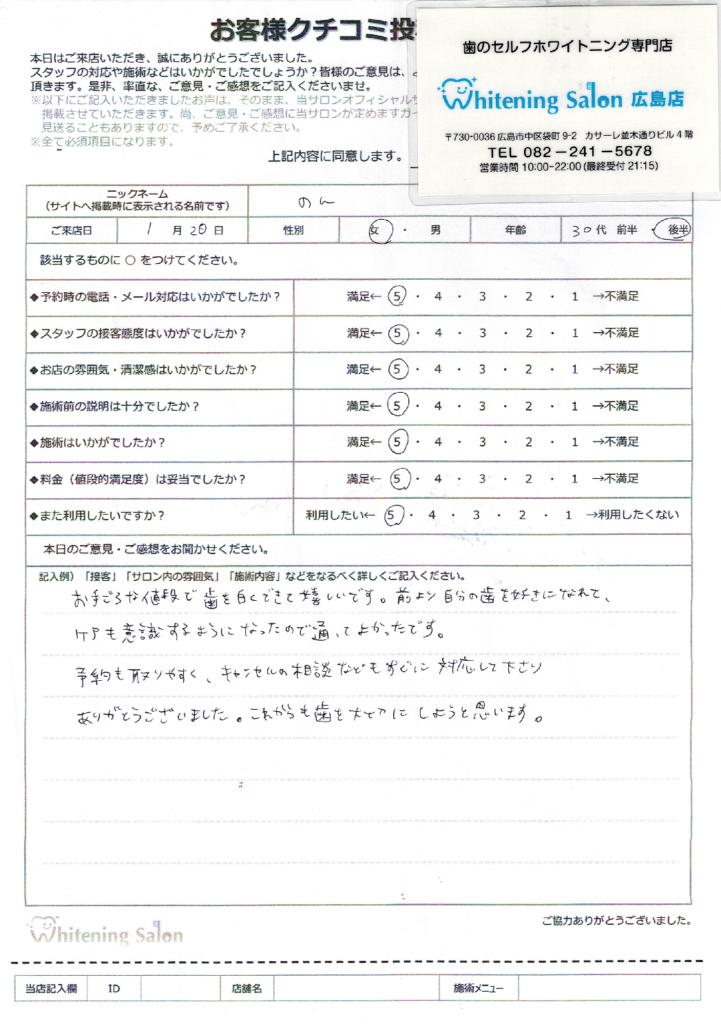 お客様クチコミ投
本日はご来店いただき、誠にありがとうございました。
スタッフの対応や施術などはいかがでしたでしょうか？皆様のご意見は、よ
頂きます。是非、率直な、ご意見・ご感想をご記入くださいませ。
※以下にご記入いただきましたお声は、そのまま、当サロンオフィシャルサ
掲載させていただきます。尚、ご意見・ご感想に当サロンが定めますガイ
見送ることもありますので、予めご了承ください。
※全て必須項目になります。
上記内容に同意します。
歯のセルフホワイトニング専門店
Whitening Salon 広島店
〒730-0036 広島市中区袋町 9-2 カサーレ並木通りビル 4 階
TEL 082-241-5678
営業時間 10:00-22:00 (最終受付 21:15)
ニックネーム
(サイトへ掲載時に表示される名前です) のん
ご来店日 1 月 20 日 性別 女 ・ 男 年齢 30 代 前半 ・ 後半
該当するものに ○ をつけてください。
◆予約時の電話・メール対応はいかがでしたか？ 満足← 5 ・ 4 ・ 3 ・ 2 ・ 1 →不満足
◆スタッフの接客態度はいかがでしたか？ 満足← 5 ・ 4 ・ 3 ・ 2 ・ 1 →不満足
◆お店の雰囲気・清潔感はいかがでしたか？ 満足← 5 ・ 4 ・ 3 ・ 2 ・ 1 →不満足
◆施術前の説明は十分でしたか？ 満足← 5 ・ 4 ・ 3 ・ 2 ・ 1 →不満足
◆施術はいかがでしたか？ 満足← 5 ・ 4 ・ 3 ・ 2 ・ 1 →不満足
◆料金（値段的満足度）は妥当でしたか？ 満足← 5 ・ 4 ・ 3 ・ 2 ・ 1 →不満足
◆また利用したいですか？ 利用したい← 5 ・ 4 ・ 3 ・ 2 ・ 1 →利用したくない
本日のご意見・ご感想をお聞かせください。
記入例）「接客」「サロン内の雰囲気」「施術内容」などをなるべく詳しくご記入ください。
お手ごろな値段で歯を白くできて嬉しいです。前より自分の歯を好きになれて、
ケアも意識するようになったので通ってよかったです。
予約も取りやすく、キャンセルの相談などもすぐに対応して下さり
ありがとうございました。これからも歯を大切にしようと思います。
Whitening Salon
ご協力ありがとうございました。
当店記入欄 ID 店舗名 施術メニュー